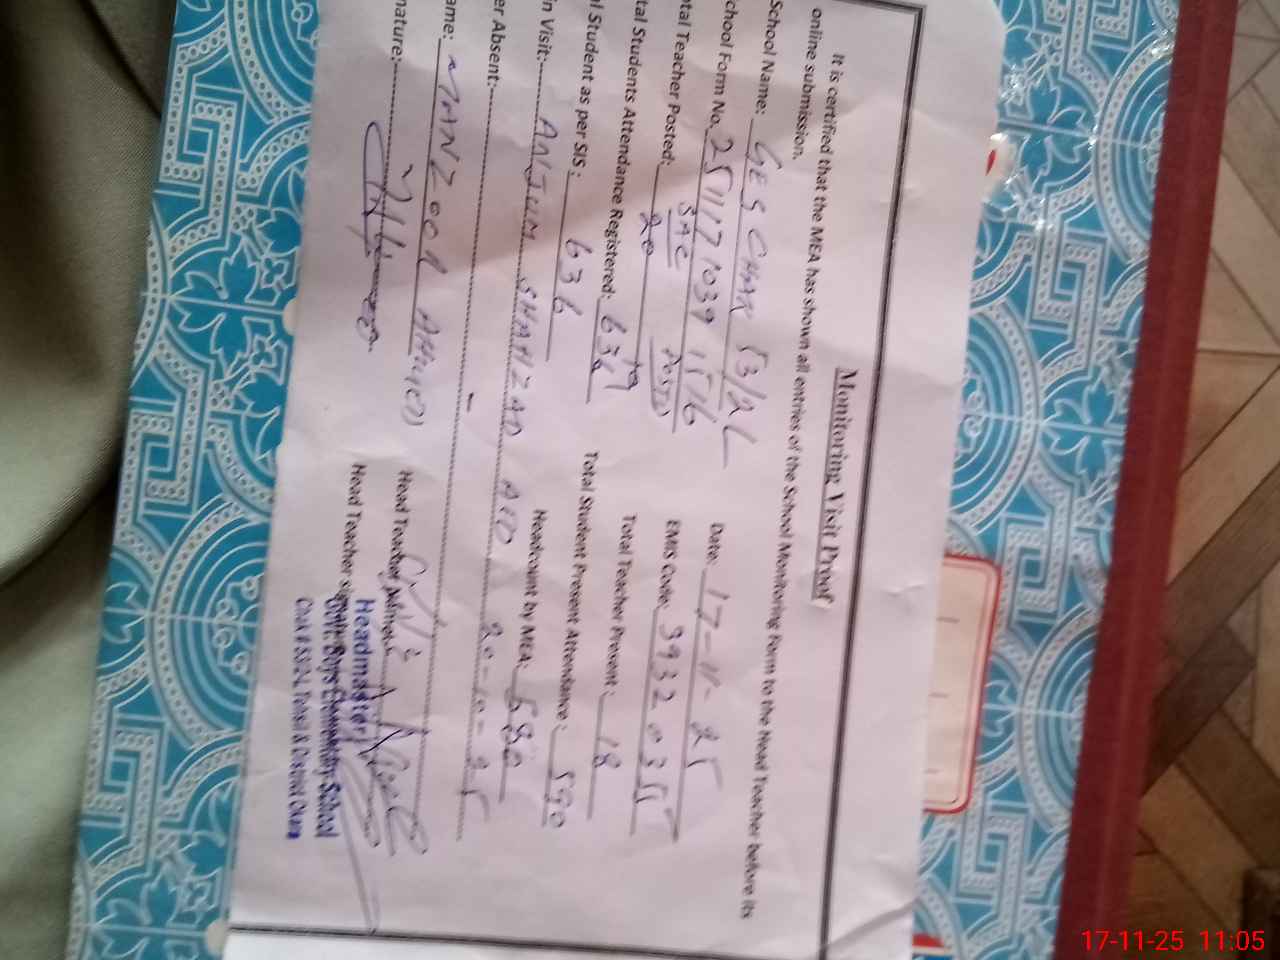 Monitoring Visit Proof
It is certified that the MEA has shown all entries of the School Monitoring Form to the Head Teacher before its
online submission.
School Name: GES CHAK 53/2L Date: 17-11-25
chool Form No. 251117 1039 1576 EMIS Code: 39320355
tal Teacher Posted: SAC 20 Posted Total Teacher Present: 18
tal Students Attendance Registered: 636 Total Student Present Attendance: 590
l Student as per SIS: 636 Headcount by MEA: 580
n Visit: ANJUM SHAHZAD AEO 20-10-25
er Absent: -
ame: MANZOOR AHMED Head Teacher
nature: Head Teacher
Headmaster
Govt. Boys Elementary School
Chak # 53/2-L Tehsil & District Okara
17-11-25 11:05